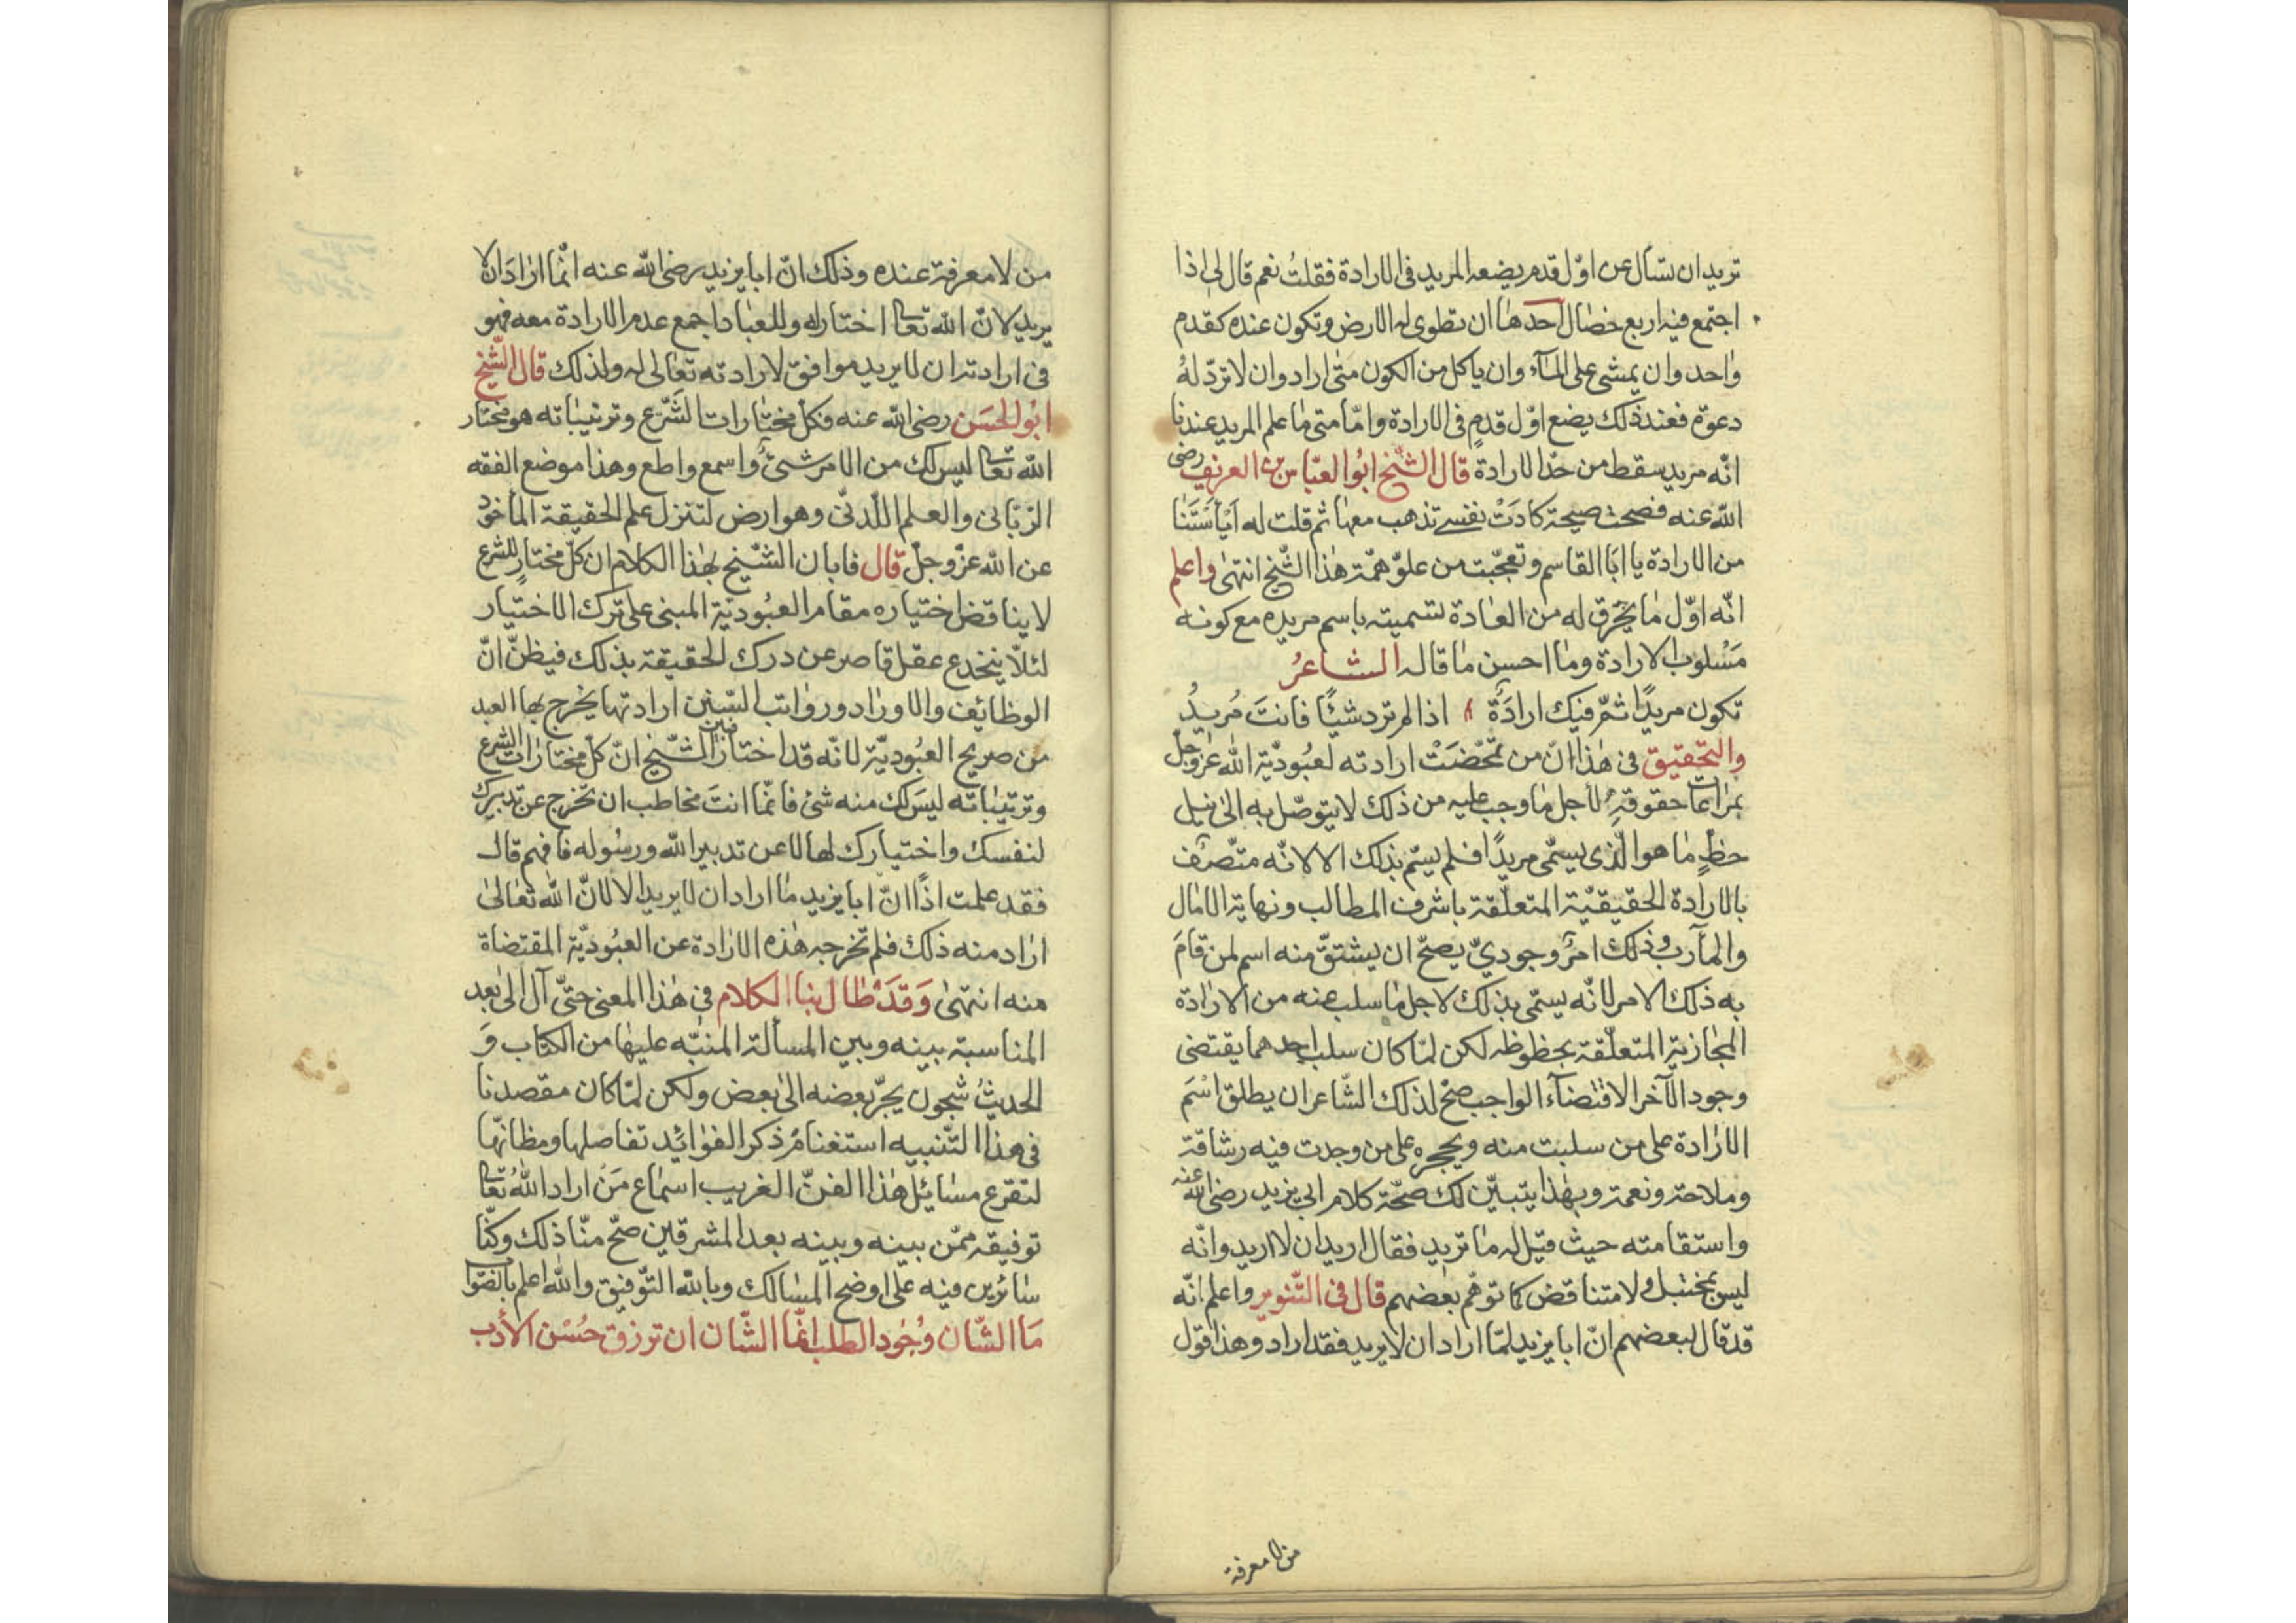 تريد ان تسأل عن اوّل قدم يضعه المريد في الارادة فقلتُ نعم قال لى اذا
اجتمع فيه اربع خصال احدها ان تطوى له الارض وتكون عنده كقدم
واحد وان يمشى على المآء وان ياكل من الكون متى اراد وان لا تردّ لهُ
دعوة فعند ذلك يضع اوّل قدمٍ في الارادة وامّا متى ما علم المريد عندنا
انّه مريد سقط من حدّ الارادة قال الشّيخ ابُو العبّاس بن العريف رضى
الله عنه فصحت صيحة كادَتْ نفسى تذهب معها ثم قلت له اَيْأَسْتَنَا
من الارادة يا ابَا القاسم وتعجّبت من علوّ همّة هذا الشّيخ انتهى واعلم
انّه اوّل ما يخرق له من العادة تسميته باسم مريده مع كونه
مَسْلوب الارادة وما احسن ما قاله الشاعرُ
تكون مريدًا ثمّ فيك ارادَةٌ ، اذا لم ترد شيئًا فانتَ مُريدُ
والتّحقيق في هذا انّ من تمحّضَتْ ارادته لعبُوديّة الله عزّ وجلّ
بمراعات حقوقه لأجل ما وجب عليه من ذلك لا يتوصّل به الى نيل
حظٍّ ما هو الّذى يسمّى مريدًا فلم يسمّ بذلك الا لانّه متّصف
بالارادة الحقيقيّة المتعلّقة باشرف المطالب ونهاية الامال
والمآرب وذلك امرٌ وجوديّ يصحّ ان يشتقّ منه اسم لمن قامَ
به ذلك الامر لا انّه يسمّى بذلك لاجل ما سلب عنه من الارادة
المجازية المتعلّقة بحظوظه لكن لمّا كان سلب احدهما يقتضى
وجود الآخر الاقتضآء الواجب صحّ لذلك الشّاعر ان يطلق اسْمَ
الارادة على من سلبت منه ويحجره على من وجدت فيه رشاقة
وملاحة ونعمة وبهذا يتبيّن لك صحّة كلام ابى يزيد رضى الله عنه
واستقامته حيث قيل له ما تريد فقال اريد ان لا اريد وانّه
ليس بمختبل ولا متناقض كما توهّم بعضهم قال في التّنوير واعلم انّه
قد قال بعضهم انّ ابا يزيد لمّا اراد ان لا يريد فقد اراد وهذا قول
من لا معرفة
من لا معرفة عنده وذلك انّ ابا يزيد رضى الله عنه انّما اراد ان لا
يريد لانّ الله تعالى اختار له وللعباد اجمع عدم الارادة معه فهو
في ارادته ان لا يريد موافق لارادته تعالى له ولذلك قال الشّيخ
ابُو الحسَن رضى الله عنه فكلّ مختارات الشّرع وترتيباته هو مختار
الله تعالى ليس لك من الامر شئٌ واسمع واطع وهذا موضع الفقه
الرّبّانى والعلم اللّدنّى وهو ارض لتنزل علم الحقيقة المأخوذ
عن الله عزّ وجلّ قال فابان الشّيخ بهذا الكلام ان كلّ مختار للشرع
لا يناقض اختياره مقام العبُوديّة المبنى على ترك الاختيار
لئلّا ينخدع عقل قاصر عن درك الحقيقة بذلك فيظنّ انّ
الوظائف والاوراد ورواتب السّنن ارادتها يخرج بها العبد
من صريح العبُوديّة لانّه قد اختار فبيّن الشّيخ انّ كلّ مختارات الشرع
وترتيباته ليسَ لك منه شئ فانّما انتَ مخاطب ان تخرج عن تدبيرك
لنفسك واختيارك لها لا عن تدبير الله ورسُوله فافهم قال
فقد علمت اذًا انّ ابا يزيد ما اراد ان لا يريد الا لانّ الله تعالى
اراد منه ذلك فلم تخرجه هذه الارادة عن العبُوديّة المقتضاة
منه انتهى وَقَدْ طال بنا الكلام في هذا المعنى حتّى آل الى بعد
المناسبة بينه وبين المسألة المنبّه عليها من الكتاب وَ
الحديثُ شجون يجرّ بعضه الى بعض ولكن لمّا كان مقصدنا
في هذا التّنبيه استغنام ذكر الفوائد تفاصلها ومظانّها
لتقرع مسائل هذا الفنّ الغريب اسماع مَن اراد اللهُ تعالى
توفيقه ممّن بينه وبينه بعد المشرقين صحّ منّا ذلك وكنّا
سائرين فيه على اوضح المسالك وبالله التّوفيق والله اعلم بالصّواب
مَا الشّان وُجُود الطلب انّما الشّان ان ترزق حُسْن الأدب